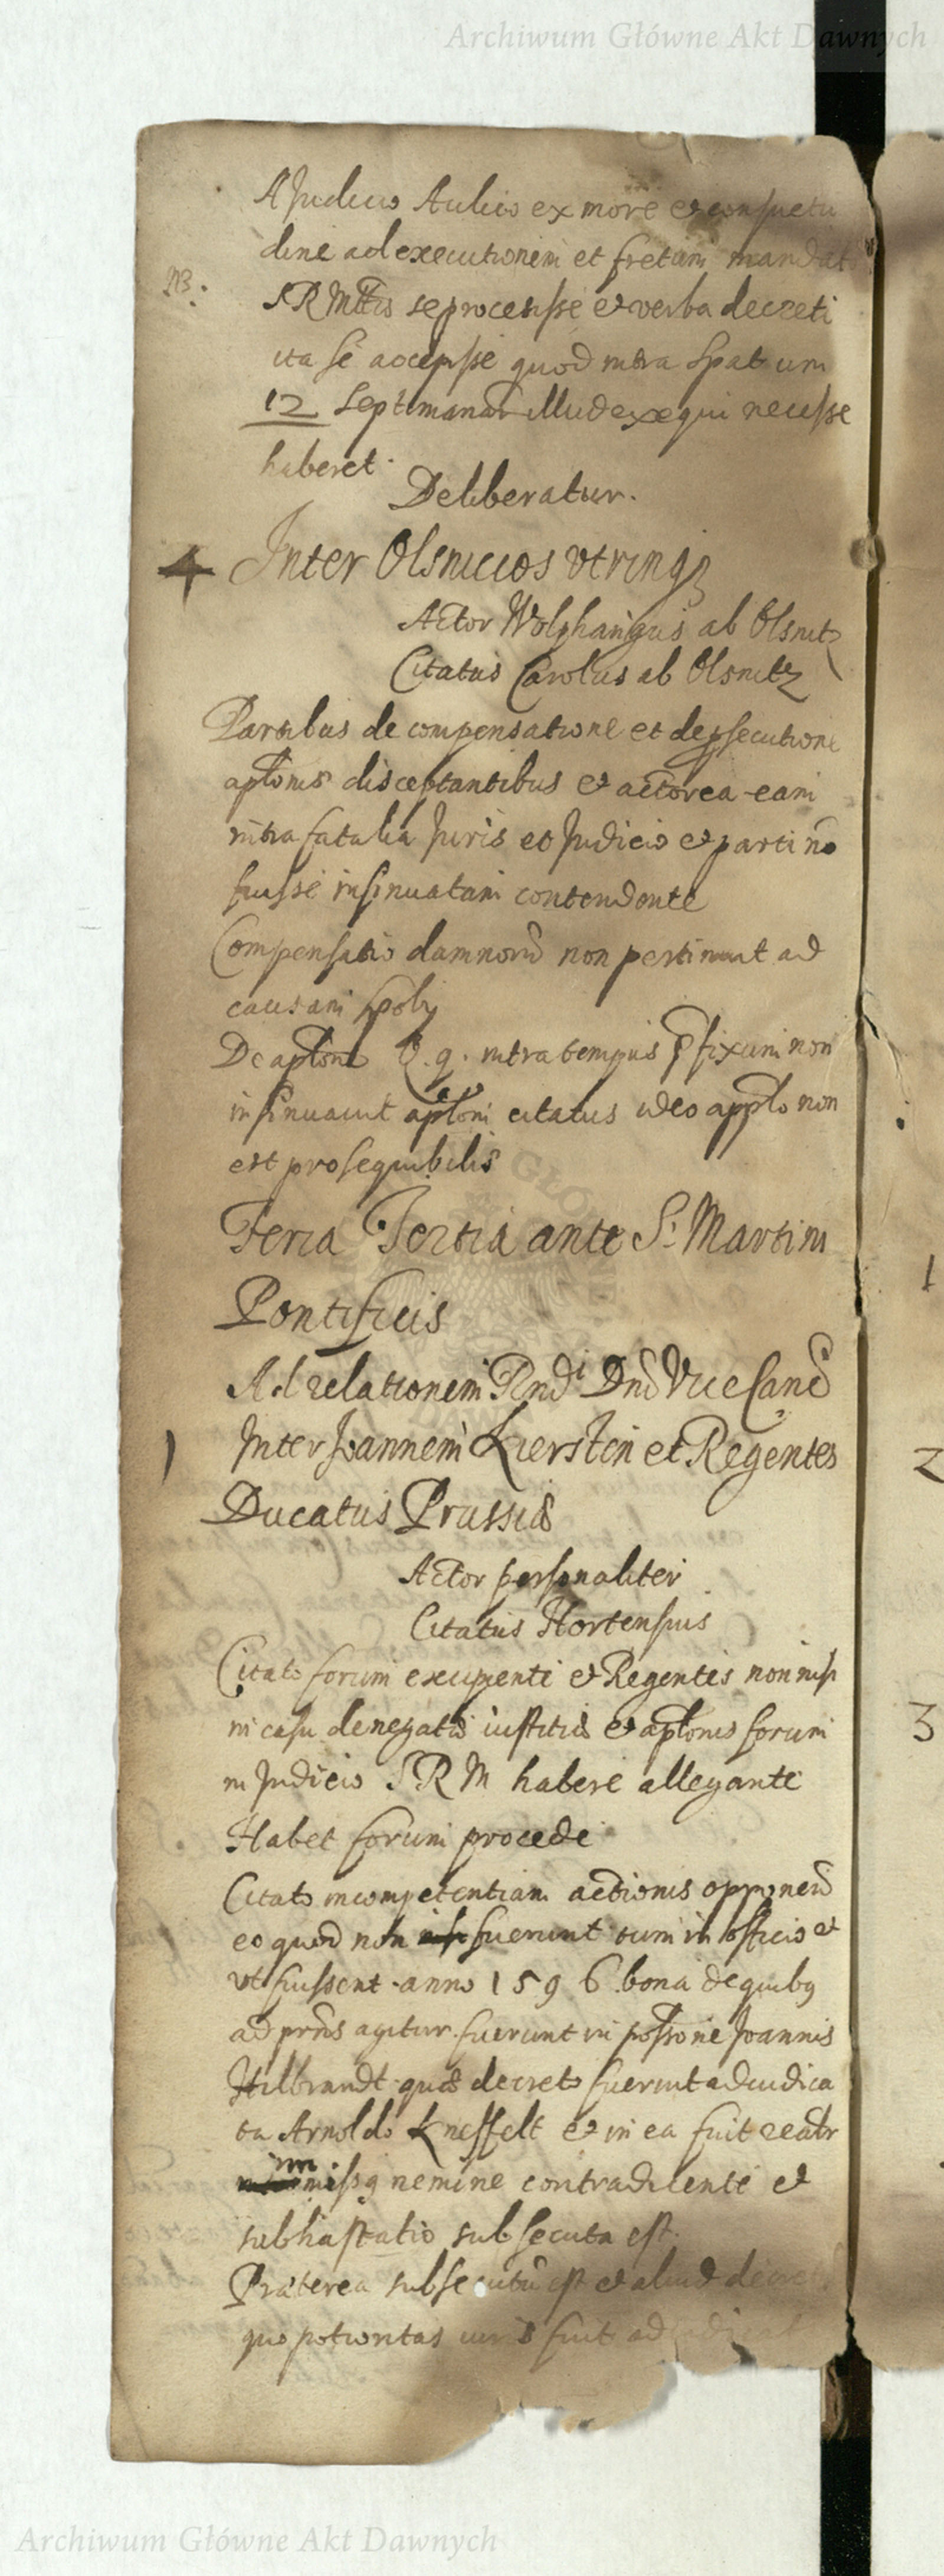 Archiwum Główne Akt Dawnych
A Judicio Aulico ex more et consuetu
dine ad executionem et fretum mandat
NB.
SRMttis se processisse et verba decreti
ita se accepisse quod intra spatium
12 Septimanas illud exequi necesse
haberet.
Deliberatur.
4 Inter Olsnicios utrinq3
Actor Wolphangus ab Olsnitz
Citatus Carolus ab Olsnitz
Partibus de compensatione et de psecutione
aplonis disceptantibus et actorea eam
intra fatalia Juris et Judicio et parti no
fuisse insinuatam contendente
Compensatio damnoru non pertinent ad
causam spoly
De aplone Q. q. intra tempus pfixum non
insinuavit aploni citatus ideo applo non
est prosequibilis
Feria Tertia ante S. Martini
Pontificis
Ad relationem Rndi Dni Vice Canc
1 Inter Joannem Kierstin et Regentes
Ducatus Prussiae
Actor personaliter
Citatus Hortensius
Citato forum excipienti et Regentes non nisi
in casu denegatae iustitiae et aplonis forum
in Judicio SRM habere allegante
Habet forum procede
Citato incompetentiam actionis opponen
eo quod non fuerunt tum in officio et
ut fuissent anno 1596 bona de quibus
ad prns agitur fuerunt in possone Joannis
Hilbrandt quae decreto fuerunt adiudica
ta Arnoldo Kneffelt et in ea fuit realr
immissq nemine contradicente et
subhastatio subsecuta est.
Praeterea subsecutu est et aliud decret
quo potioritas iuris fuit
1
2
3
Archiwum Główne Akt Dawnych